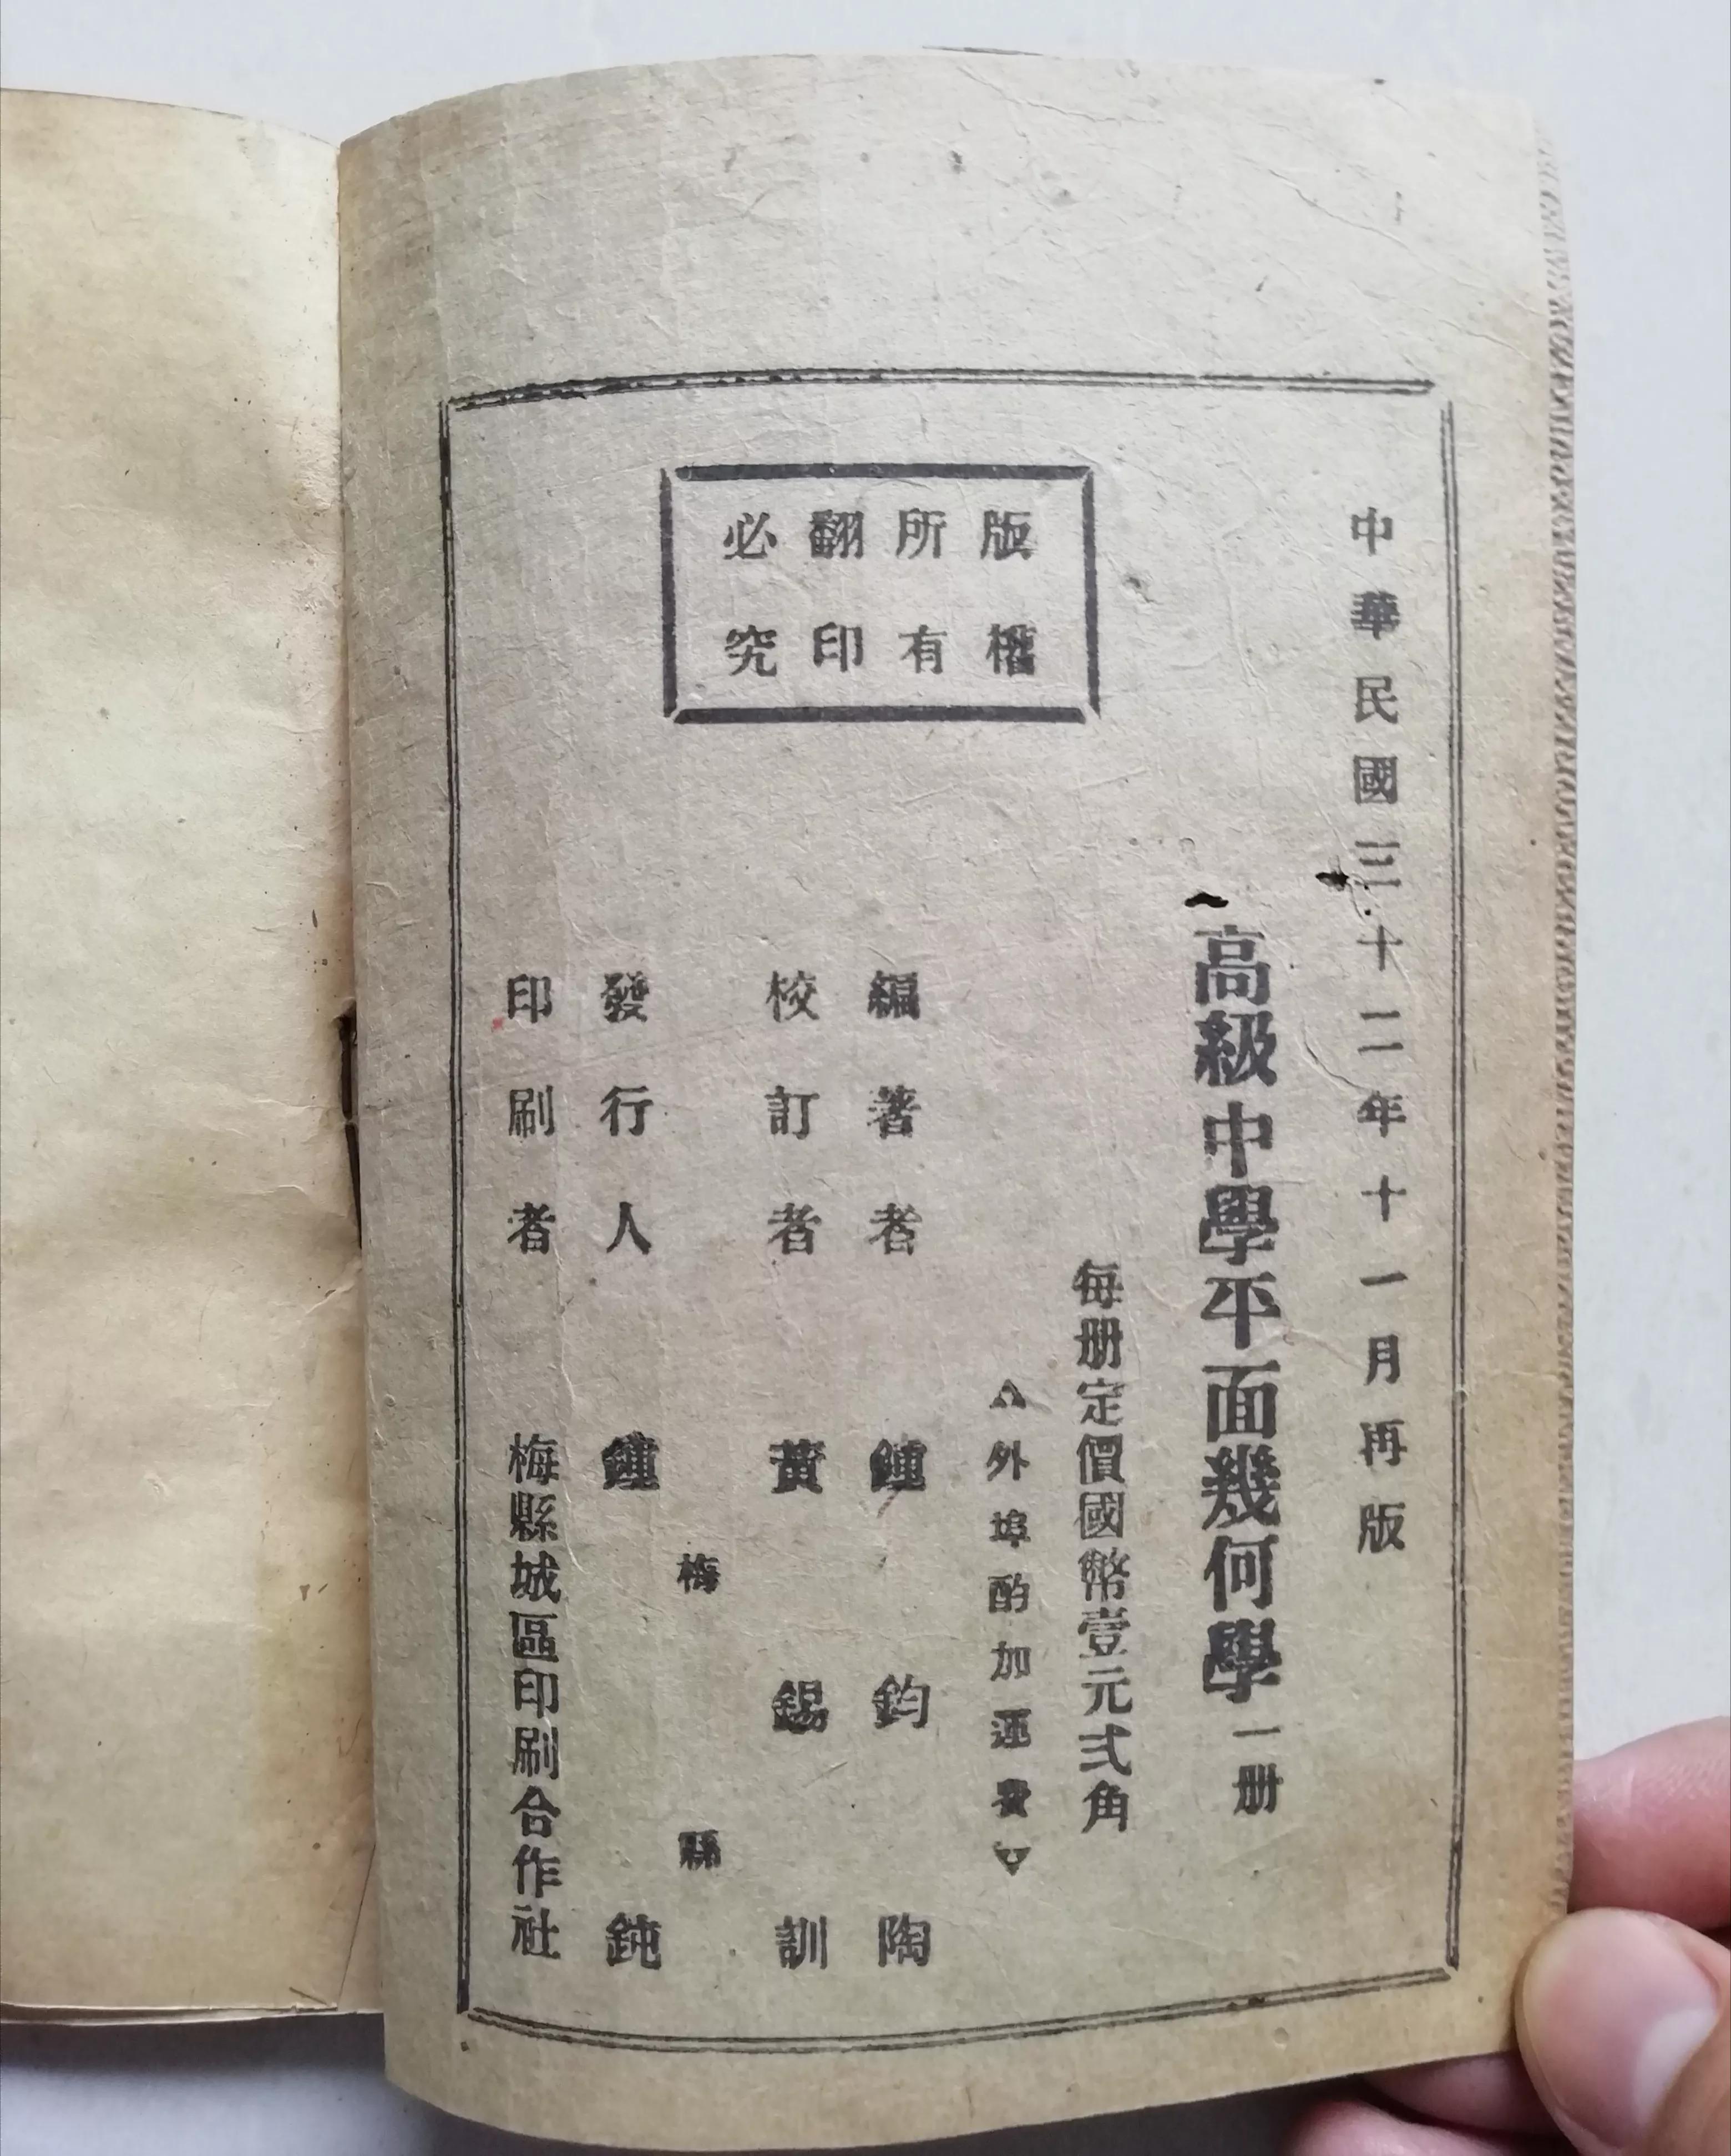 中華民國三十二年十一月再版
高級中學平面幾何學一册
每册定價國幣壹元弍角
外埠酌加運費
版權
所有
翻印
必究
編著者 鍾鈞陶
校訂者 黃錫訓
梅縣
發行人 鍾鈍
印刷者 梅縣城區印刷合作社